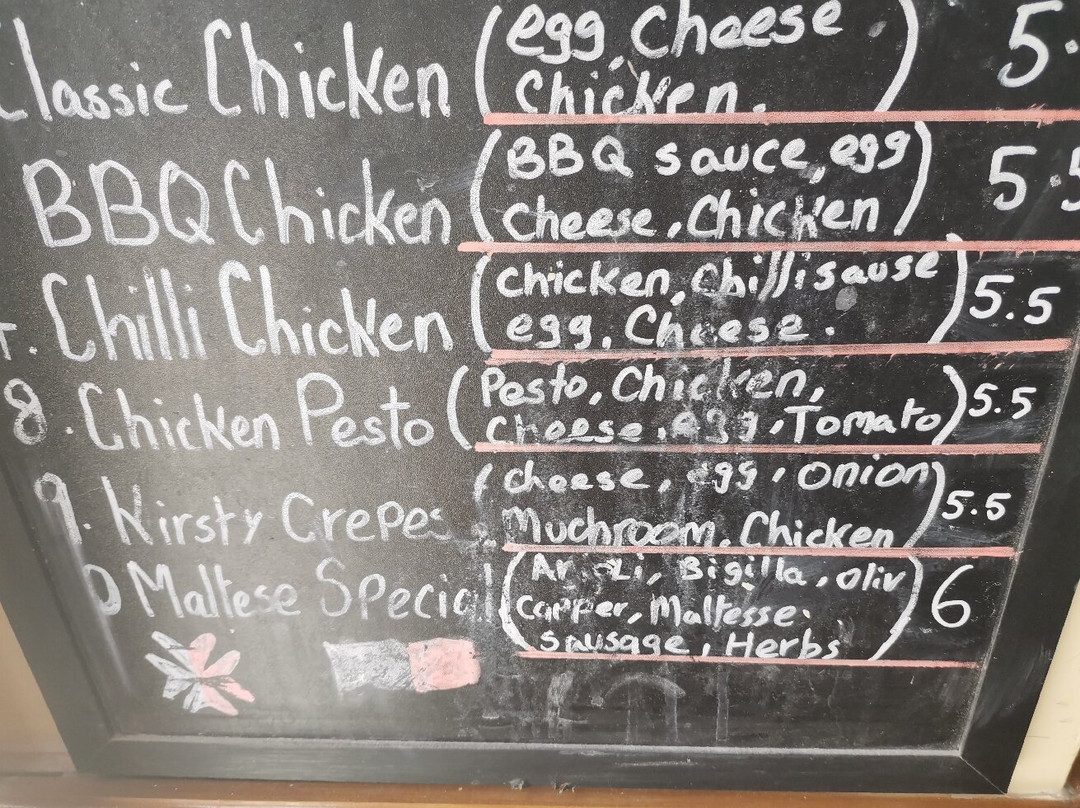 Classic Chicken (egg, Cheese
Chicken. 5.
BBQ Chicken (BBQ sauce, egg
Cheese, Chicken) 5.5
Chilli Chicken (Chicken, Chilli sause
egg, Cheese.) 5.5
8. Chicken Pesto (Pesto, Chicken,
Cheese, egg, Tomato) 5.5
9. Kirsty Crepes (Cheese, egg, onion
Muchroom, Chicken) 5.5
0 Maltese Special (Bigilla, oliv
Capper, Maltesse.
sausage, Herbs) 6